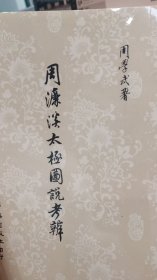 周學武著
周濂溪太極圖說考辨